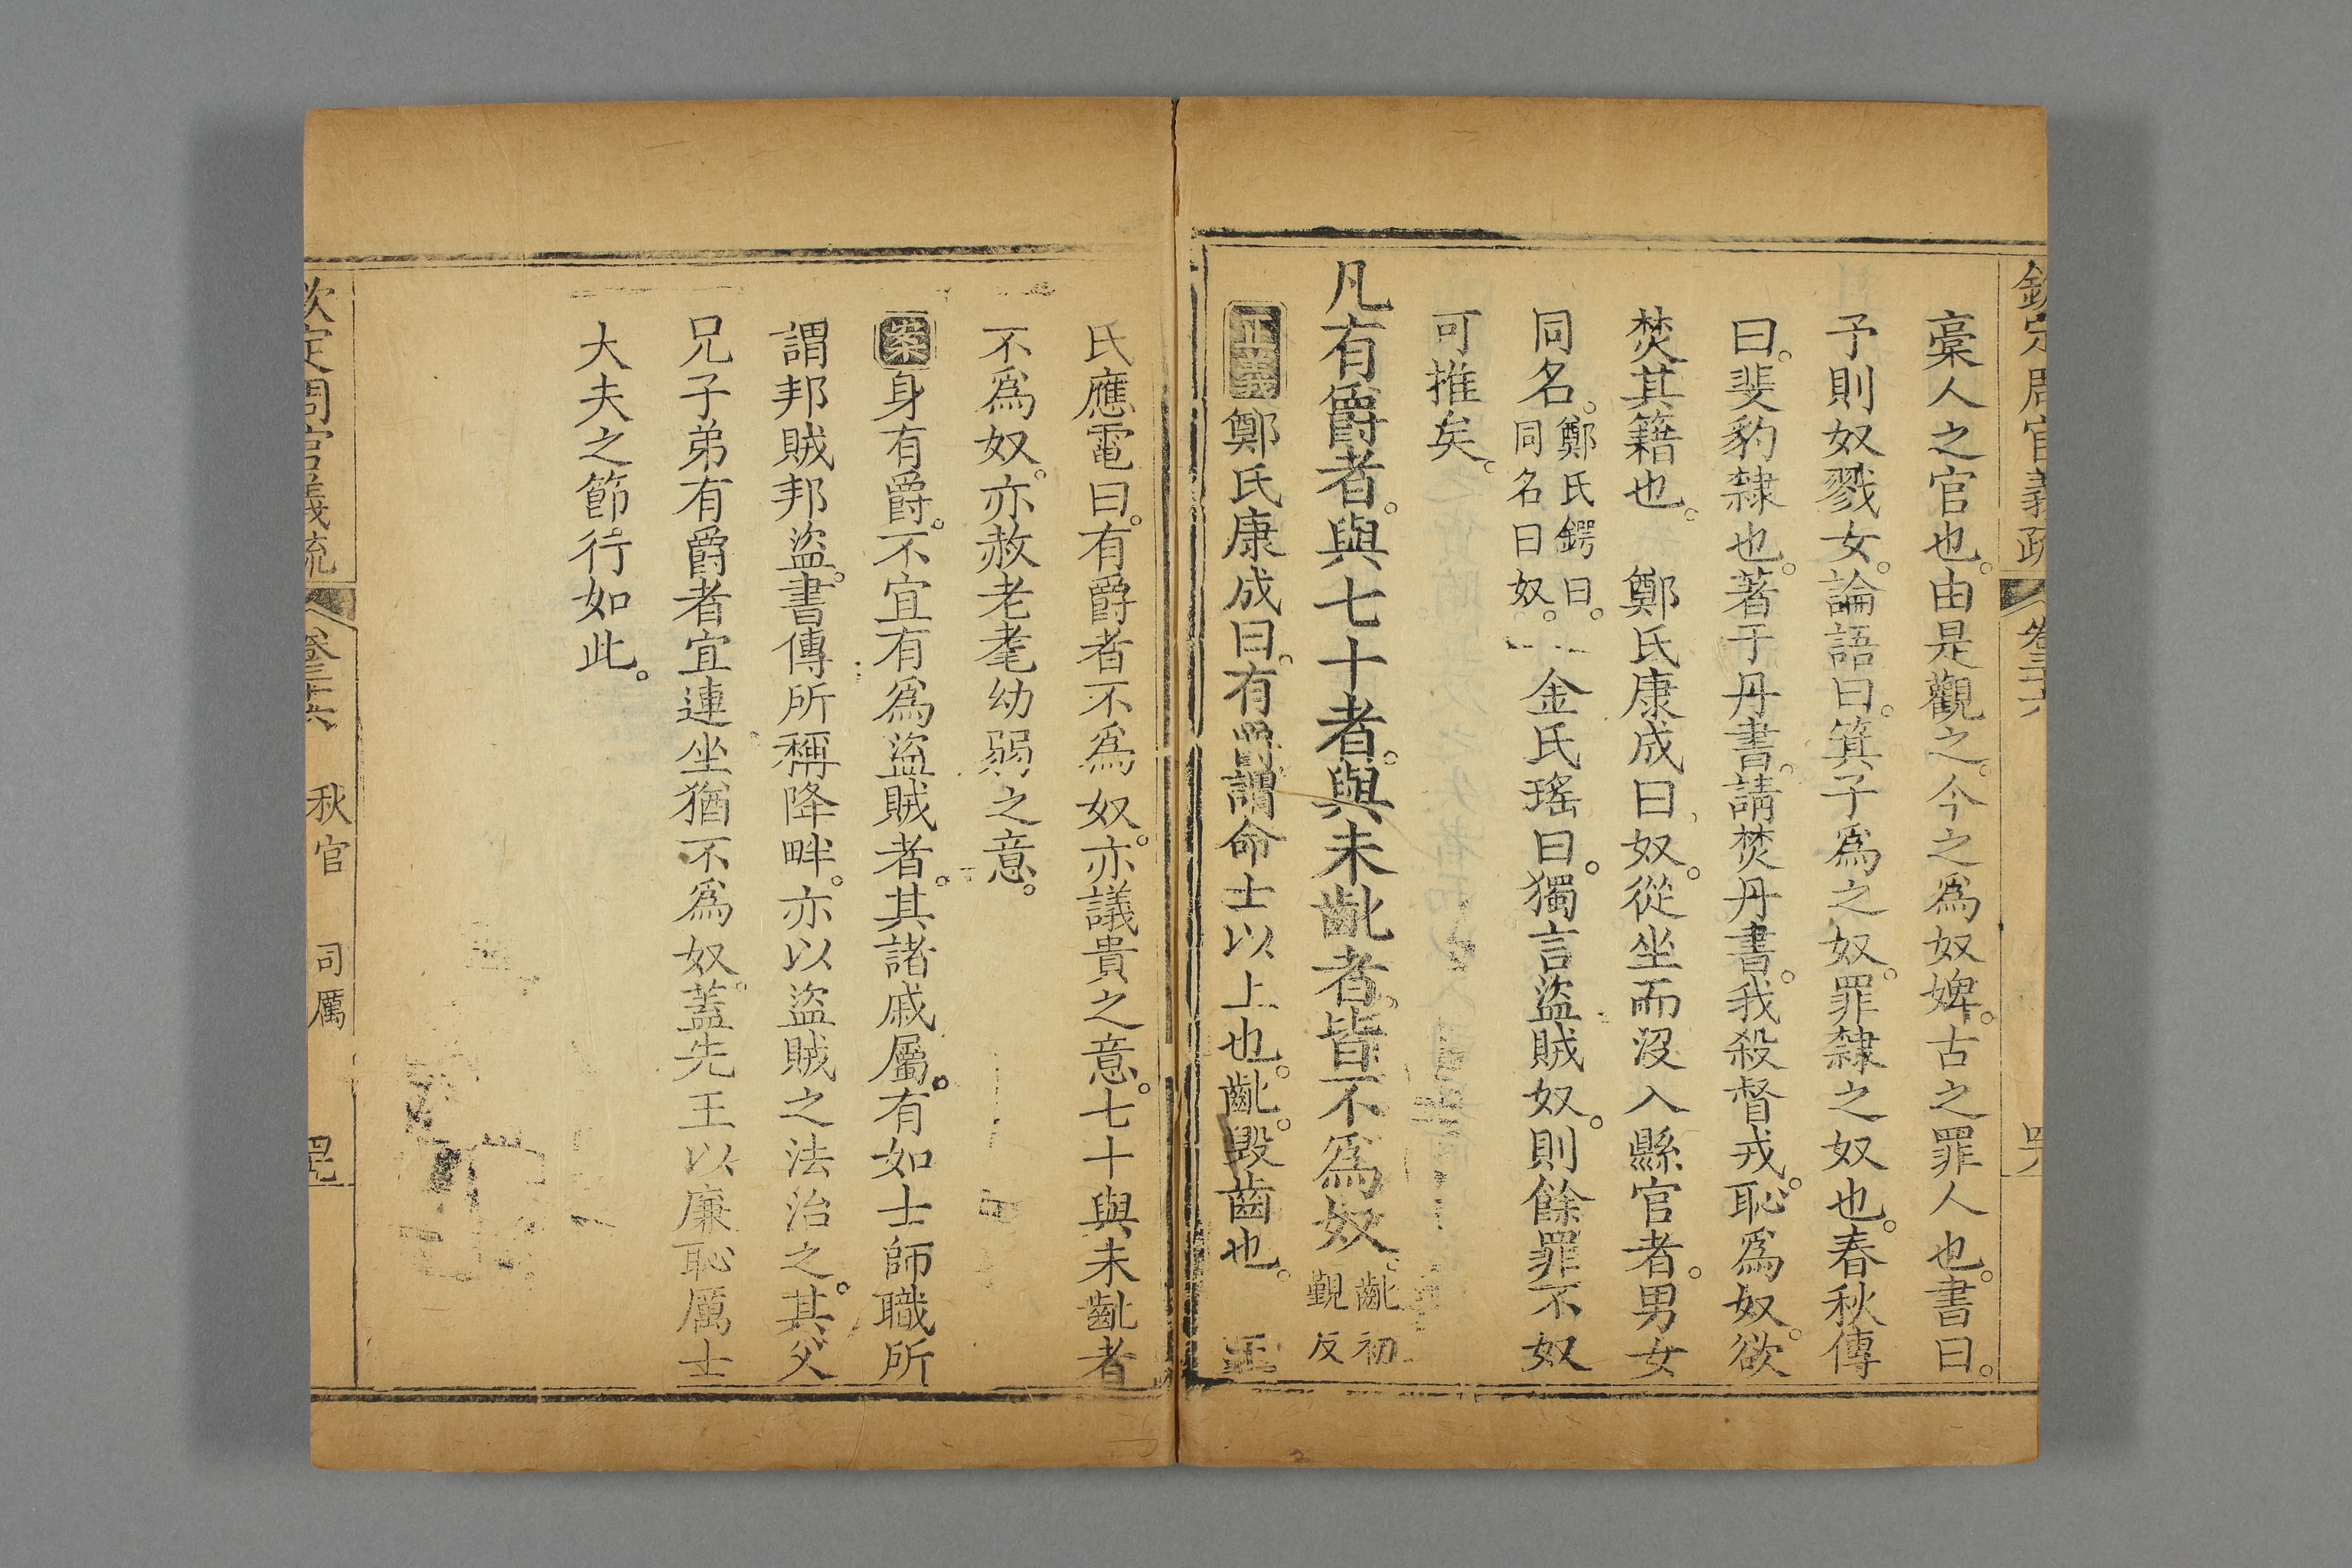 欽定周官義疏 卷三十六
槀人之官也。由是觀之。今之爲奴婢。古之罪人也。書曰。
予則奴戮女。論語曰。箕子爲之奴。罪隸之奴也。春秋傳
曰。斐豹隸也。著于丹書。請焚丹書。我殺督戎。恥爲奴。欲
焚其籍也。 鄭氏康成曰。奴。從坐而沒入縣官者。男女
同名。鄭氏鍔曰。同名曰奴。 金氏瑤曰。獨言盜賊奴。則餘罪不奴
可推矣。
凡有爵者。與七十者。與未齓者。皆不爲奴。齓初覲反
正義 鄭氏康成曰。有爵謂命士以上也。齓。毀齒也。 王
氏應電曰。有爵者不爲奴。亦議貴之意。七十與未齓者
不爲奴。亦赦老耄幼弱之意。
案 身有爵。不宜有爲盜賊者。其諸戚屬。有如士師職所
謂邦賊邦盜。書傳所稱降畔。亦以盜賊之法治之。其父
兄子弟有爵者宜連坐猶不爲奴。蓋先王以廉恥厲士
大夫之節。行如此。
欽定周官義疏 卷三十六 秋官 司厲